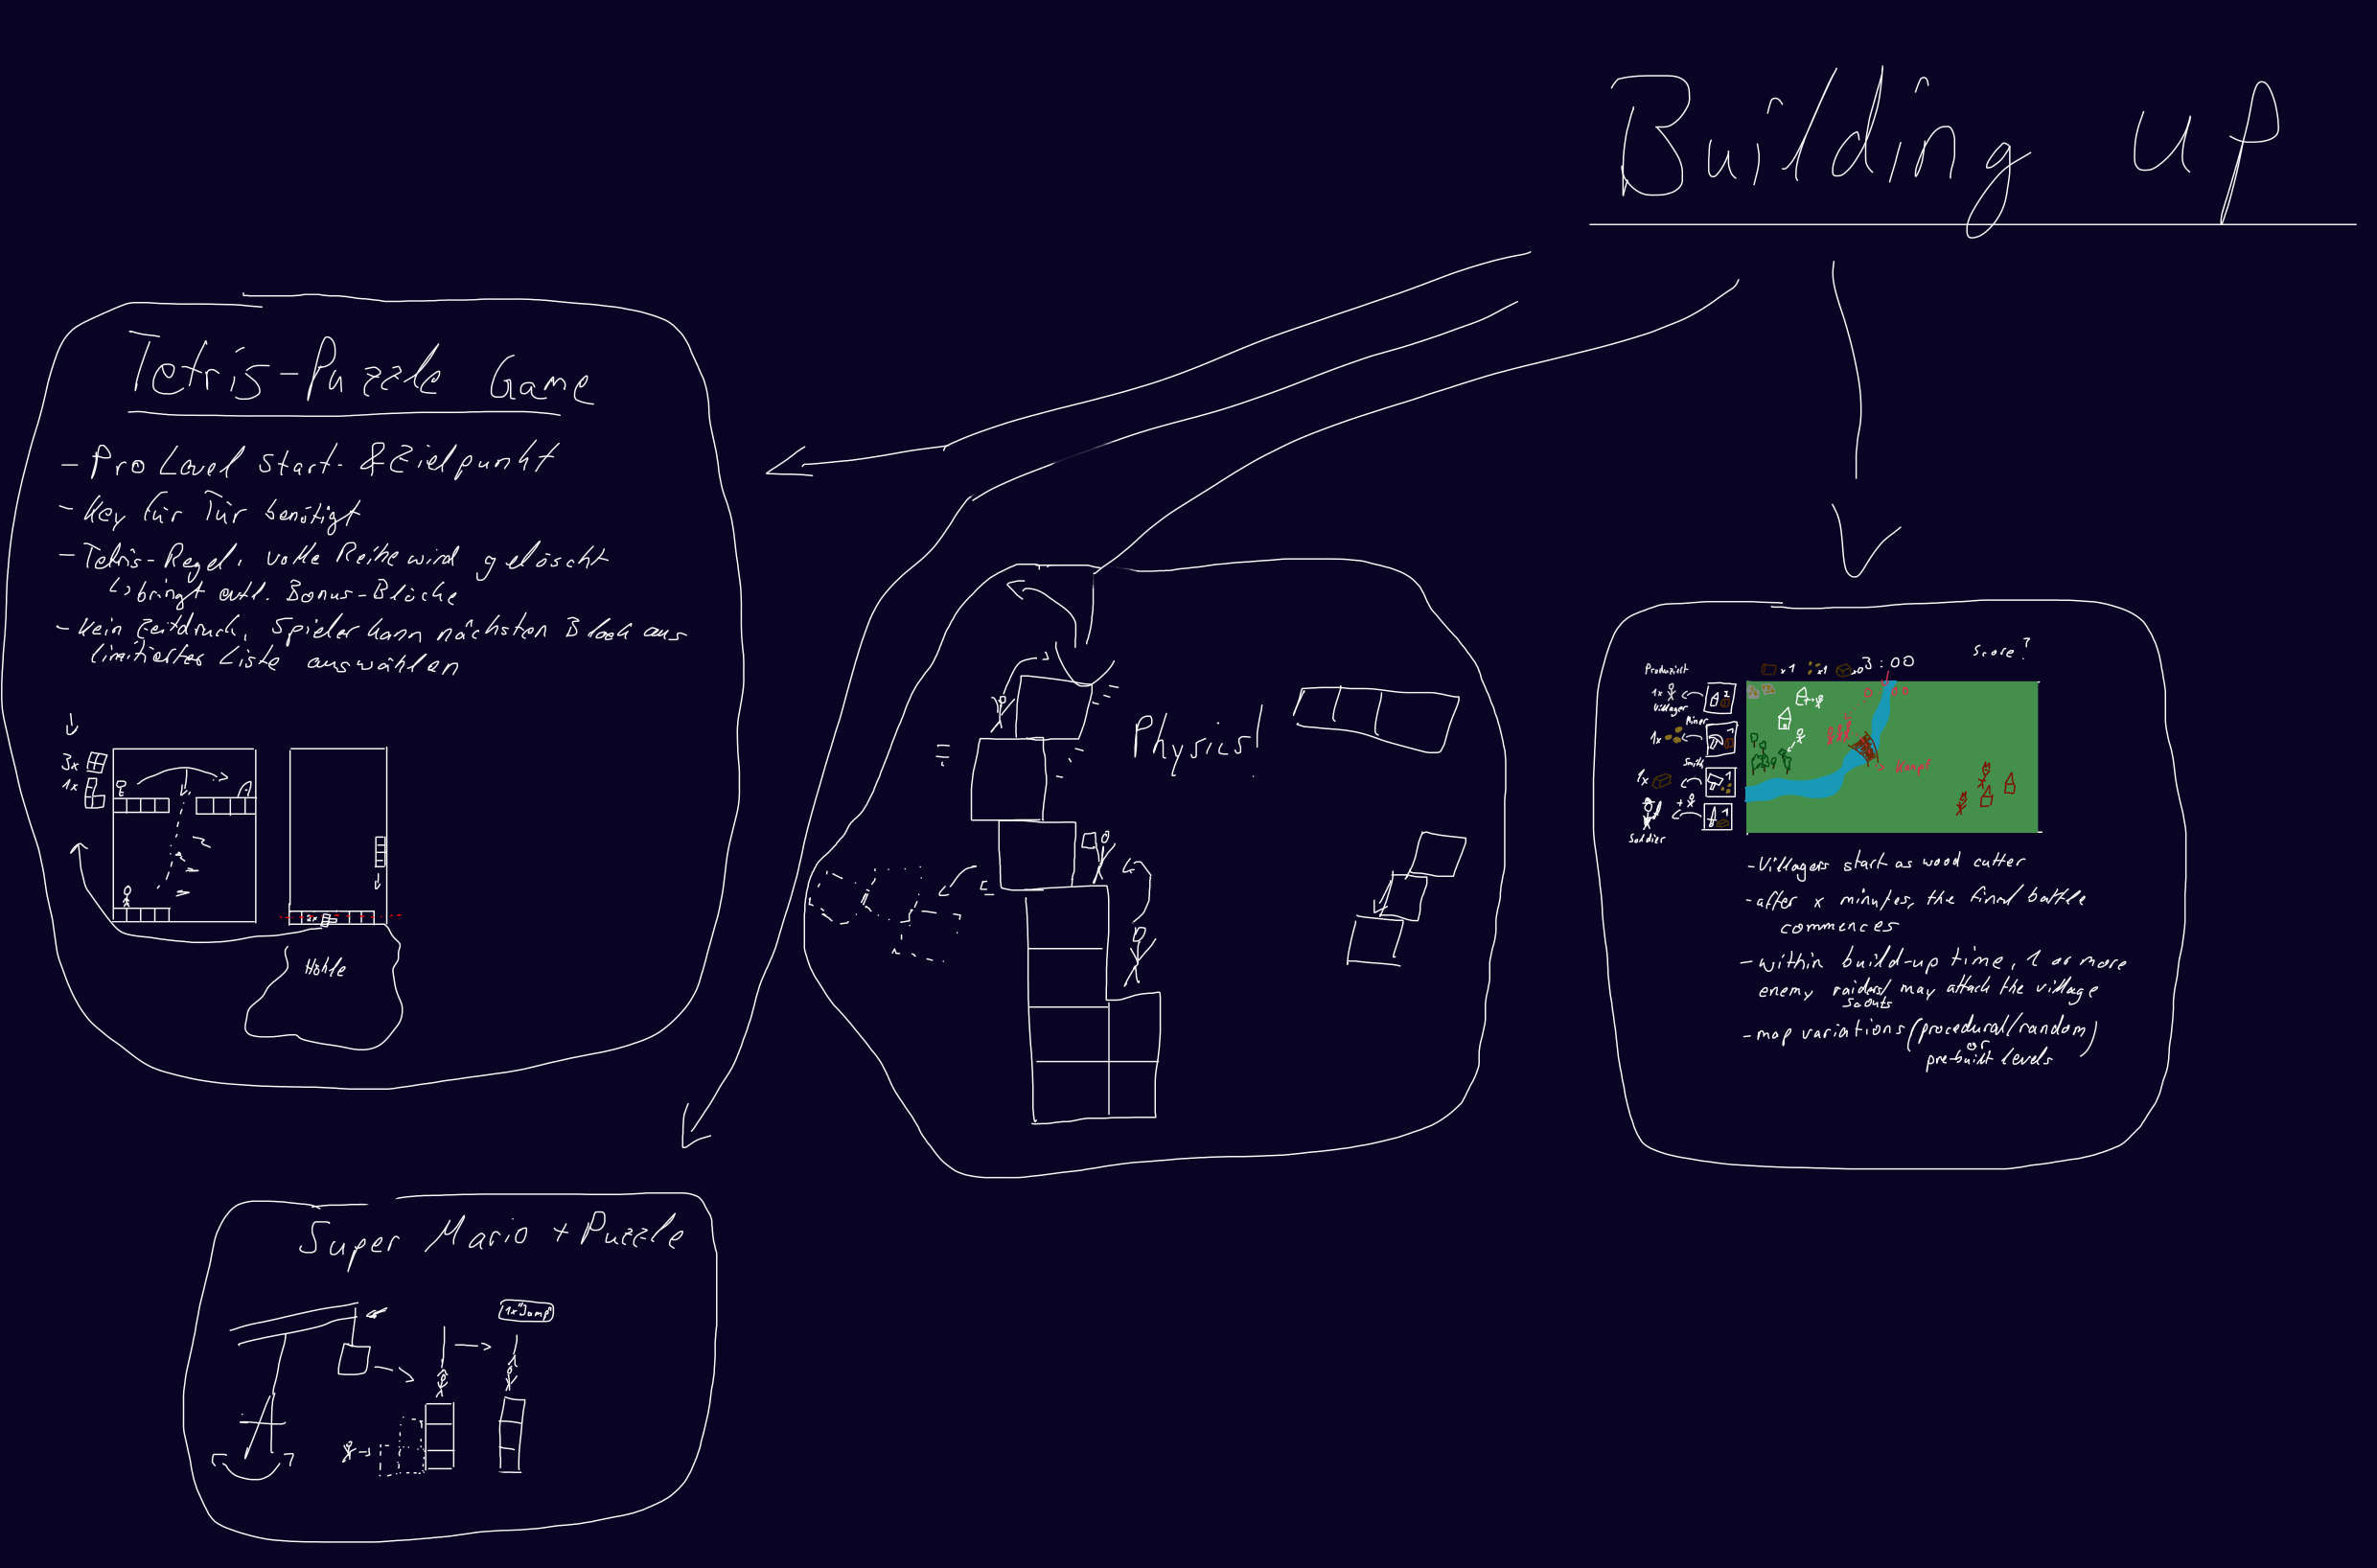 Building up
Tetris-Puzzle Game
- Pro Level Start- & Zielpunkt
- Key für Tür benötigt
- Tetris-Regel, volle Reihe wird gelöscht
↳ bringt evtl. Bonus-Blöcke
- Kein Zeitdruck, Spieler kann nächsten Block aus
limitierter Liste auswählen
3x
1x
2x
Höhle
Physics!
Super Mario + Puzzle
1x "Jump"
Score?
Produziert
x1 x1 x0 3:00
1x
Villager
2
Miner
1x
1
Smith
1x
1
+
1
Soldier
Kampf
- Villagers start as wood cutter
- after x minutes, the final battle
commences
- within build-up time, 1 or more
enemy raiders/
scouts may attack the village
- map variations (procedural/random
or
pre-built levels)